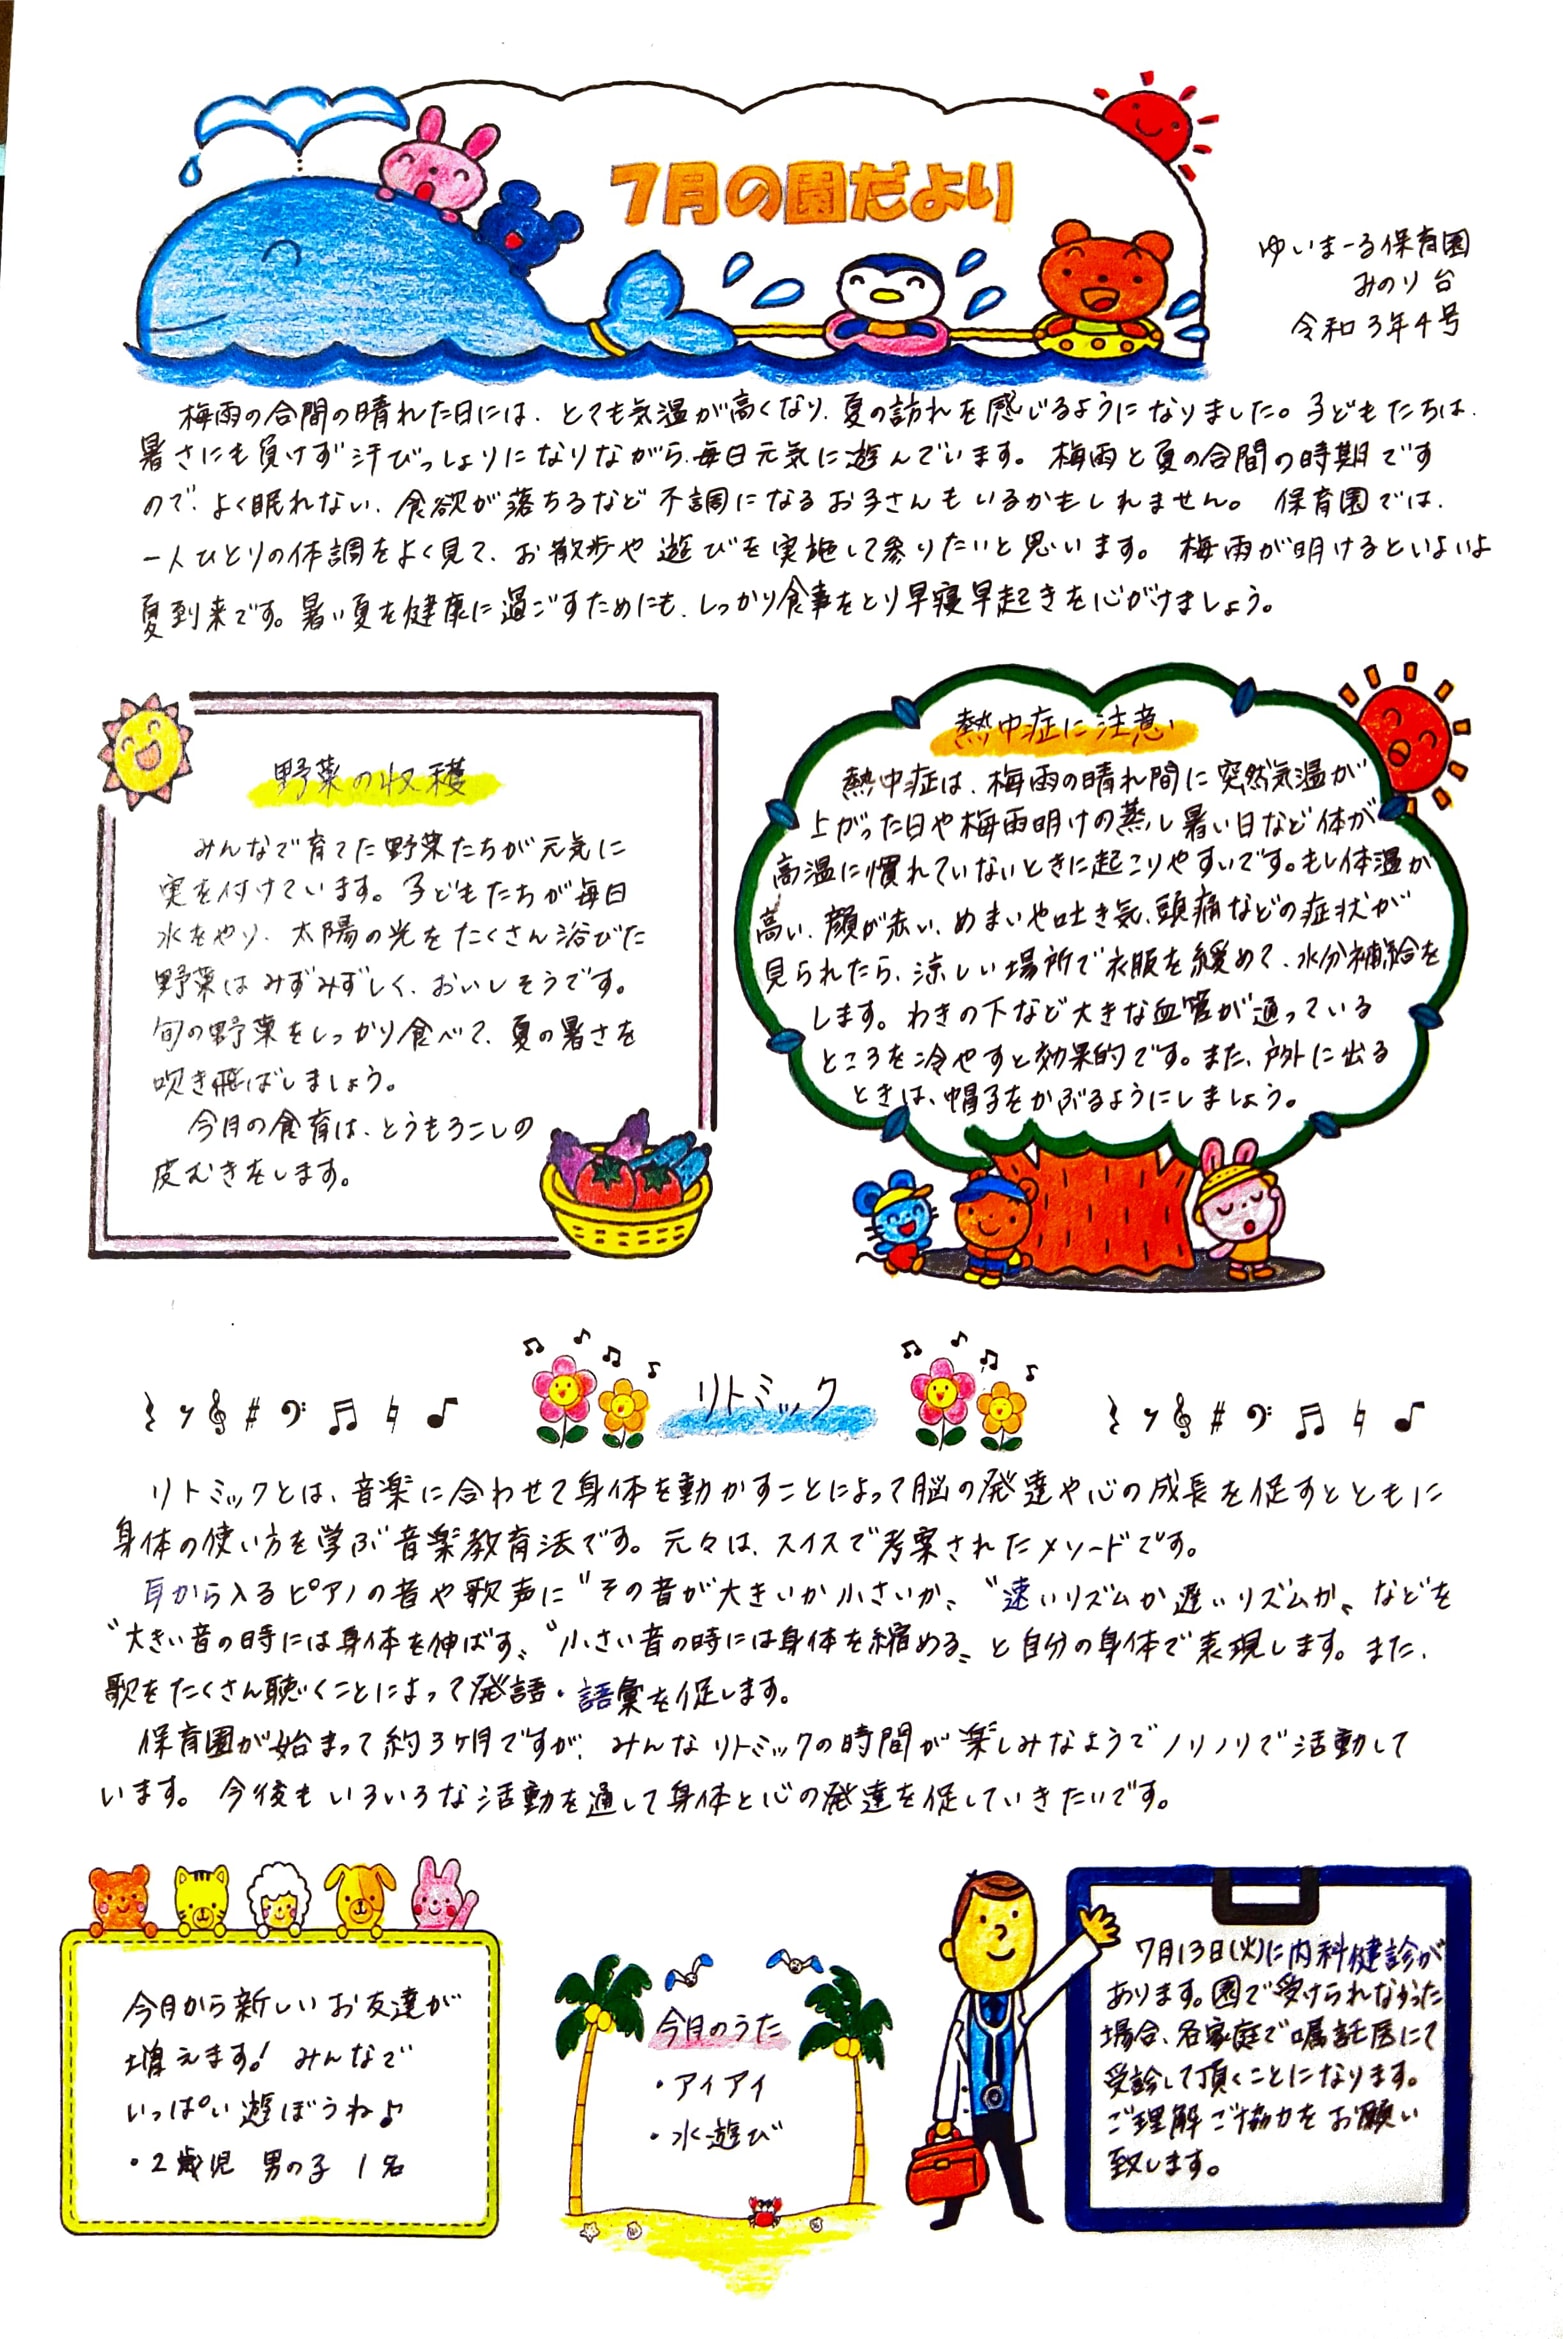 7月の園だより
ゆいまーる保育園
みのり台
令和3年4号
梅雨の合間の晴れた日には、とても気温が高くなり、夏の訪れを感じるようになりました。子どもたちは、
暑さにも負けず汗びっしょりになりながら、毎日元気に遊んでいます。梅雨と夏の合間の時期です
ので、よく眠れない、食欲が落ちるなど不調になるお子さんもいるかもしれません。保育園では、
一人ひとりの体調をよく見て、お散歩や遊びを実施して参りたいと思います。梅雨が明けるといよいよ
夏到来です。暑い夏を健康に過ごすためにも、しっかり食事をとり早寝早起きを心がけましょう。
野菜の収穫
みんなで育てた野菜たちが元気に
実を付けています。子どもたちが毎日
水をやり、太陽の光をたくさん浴びた
野菜はみずみずしく、おいしそうです。
旬の野菜をしっかり食べて、夏の暑さを
吹き飛ばしましょう。
今月の食育は、とうもろこしの
皮むきをします。
熱中症に注意
熱中症は、梅雨の晴れ間に突然気温が
上がった日や梅雨明けの蒸し暑い日など体が
高温に慣れていないときに起こりやすいです。もし体温が
高い、顔が赤い、めまいや吐き気、頭痛などの症状が
見られたら、涼しい場所で衣服を緩めて、水分補給を
します。わきの下など大きな血管が通っている
ところを冷やすと効果的です。また、戸外に出る
ときは、帽子をかぶるようにしましょう。
リトミック
リトミックとは、音楽に合わせて身体を動かすことによって脳の発達や心の成長を促すとともに
身体の使い方を学ぶ音楽教育法です。元々は、スイスで考案されたメソードです。
耳から入るピアノの音や歌声に〝その音が大きいか小さいか〟〝速いリズムか遅いリズムか〟などを
〝大きい音の時には身体を伸ばす〟〝小さい音の時には身体を縮める〟と自分の身体で表現します。また、
歌をたくさん聴くことによって発語・語彙を促します。
保育園が始まって約3ヶ月ですが、みんなリトミックの時間が楽しみなようでノリノリで活動して
います。今後もいろいろな活動を通して身体と心の発達を促していきたいです。
今月から新しいお友達が
増えます！みんなで
いっぱい遊ぼうね♪
・2歳児 男の子 1名
今月のうた
・アイアイ
・水遊び
7月13日(火)に内科健診が
あります。園で受けられなかった
場合、各家庭で嘱託医にて
受診して頂くことになります。
ご理解ご協力をお願い
致します。